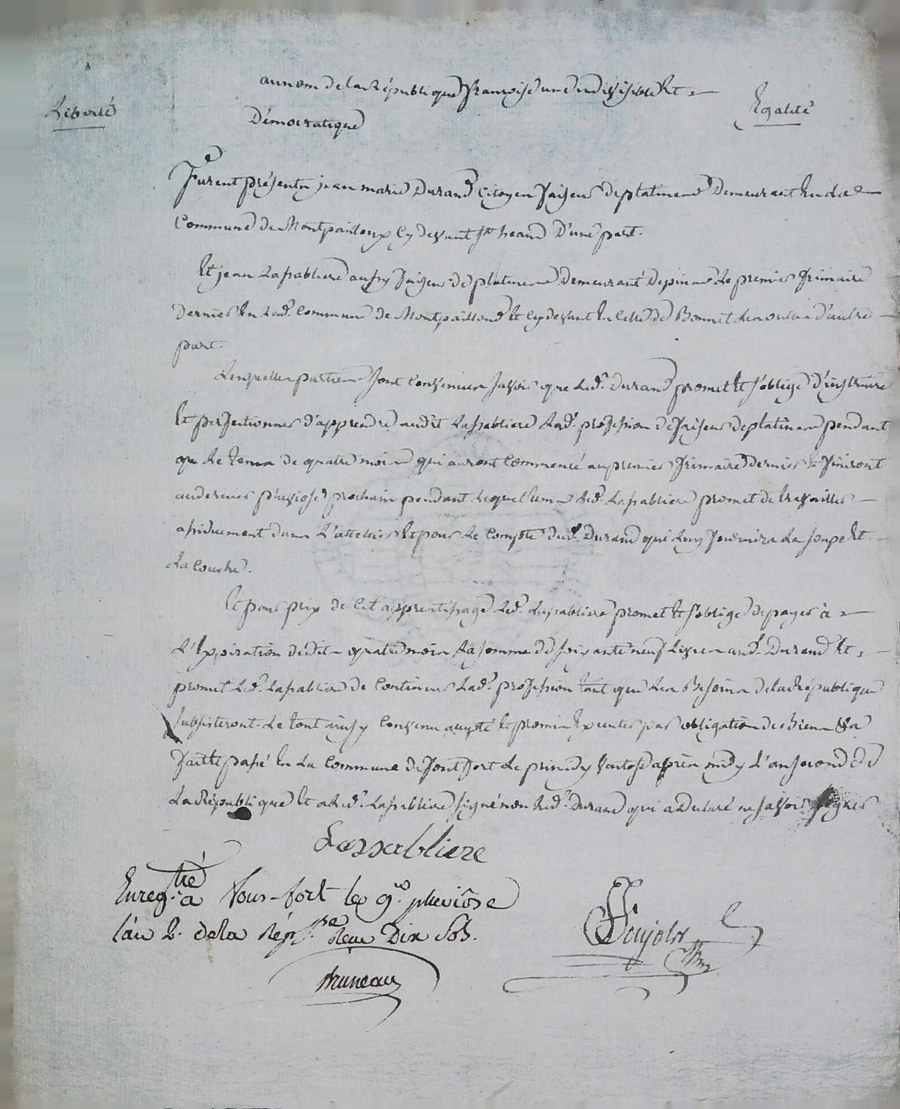 Liberté
au nom de la République françoise une indivisible Et
Egalité
Démocratique
Furent présents jean marie Durand Citoyen faiseur de platines Demeurant En la
Commune de Montpailloux Cy devant st heand D'une part.
Et jean Lassabliere aussy faiseur de platines Demeurant Depuis le premier frimaire
dernier En lad. Commune de Montpailloux et Cy devant En Celle de Bonnet d'autre
part.
Lesquelles parties sont Convenues savoir que Led. Durand promet Et s'oblige d'instruire
Et perfectionner d'apprendre audit Lassabliere Lad. profession de faiseur de platines pendant
Le tems de quatre mois qui auront Commencé au premier frimaire dernier & finiront
au dernier prochain pendant Lequel tems Led. Lassabliere promet de travailler
assidument dans L'attelier Et pour Le Compte dud. Durand qui Luy fournira La soupe Et
La Couche.
Et pour prix de Cet apprentissage Led. Lassabliere promet Et s'oblige de payer à
L'Expiration desdits quatre mois La somme de soixante neuf Livres aud. Durand Et
promet Led. Lassabliere de Continuer Lad. profession tant que Les Besoins de la République
subsisteront. Le tout ainsy Convenu accepté Et promis Executer par obligation de Biens &a
fait Et passé En La Commune de fontfort Le après midy L'an second de
La République Et a Led. Lassabliere signé non Led. Durand qui a déclaré ne savoir signer
Lassabliere
Enreg.tré à fons-fort le 9e. pluviôse
l'an 2. de la Rép. Reçu Dix Sols.
Bruneau